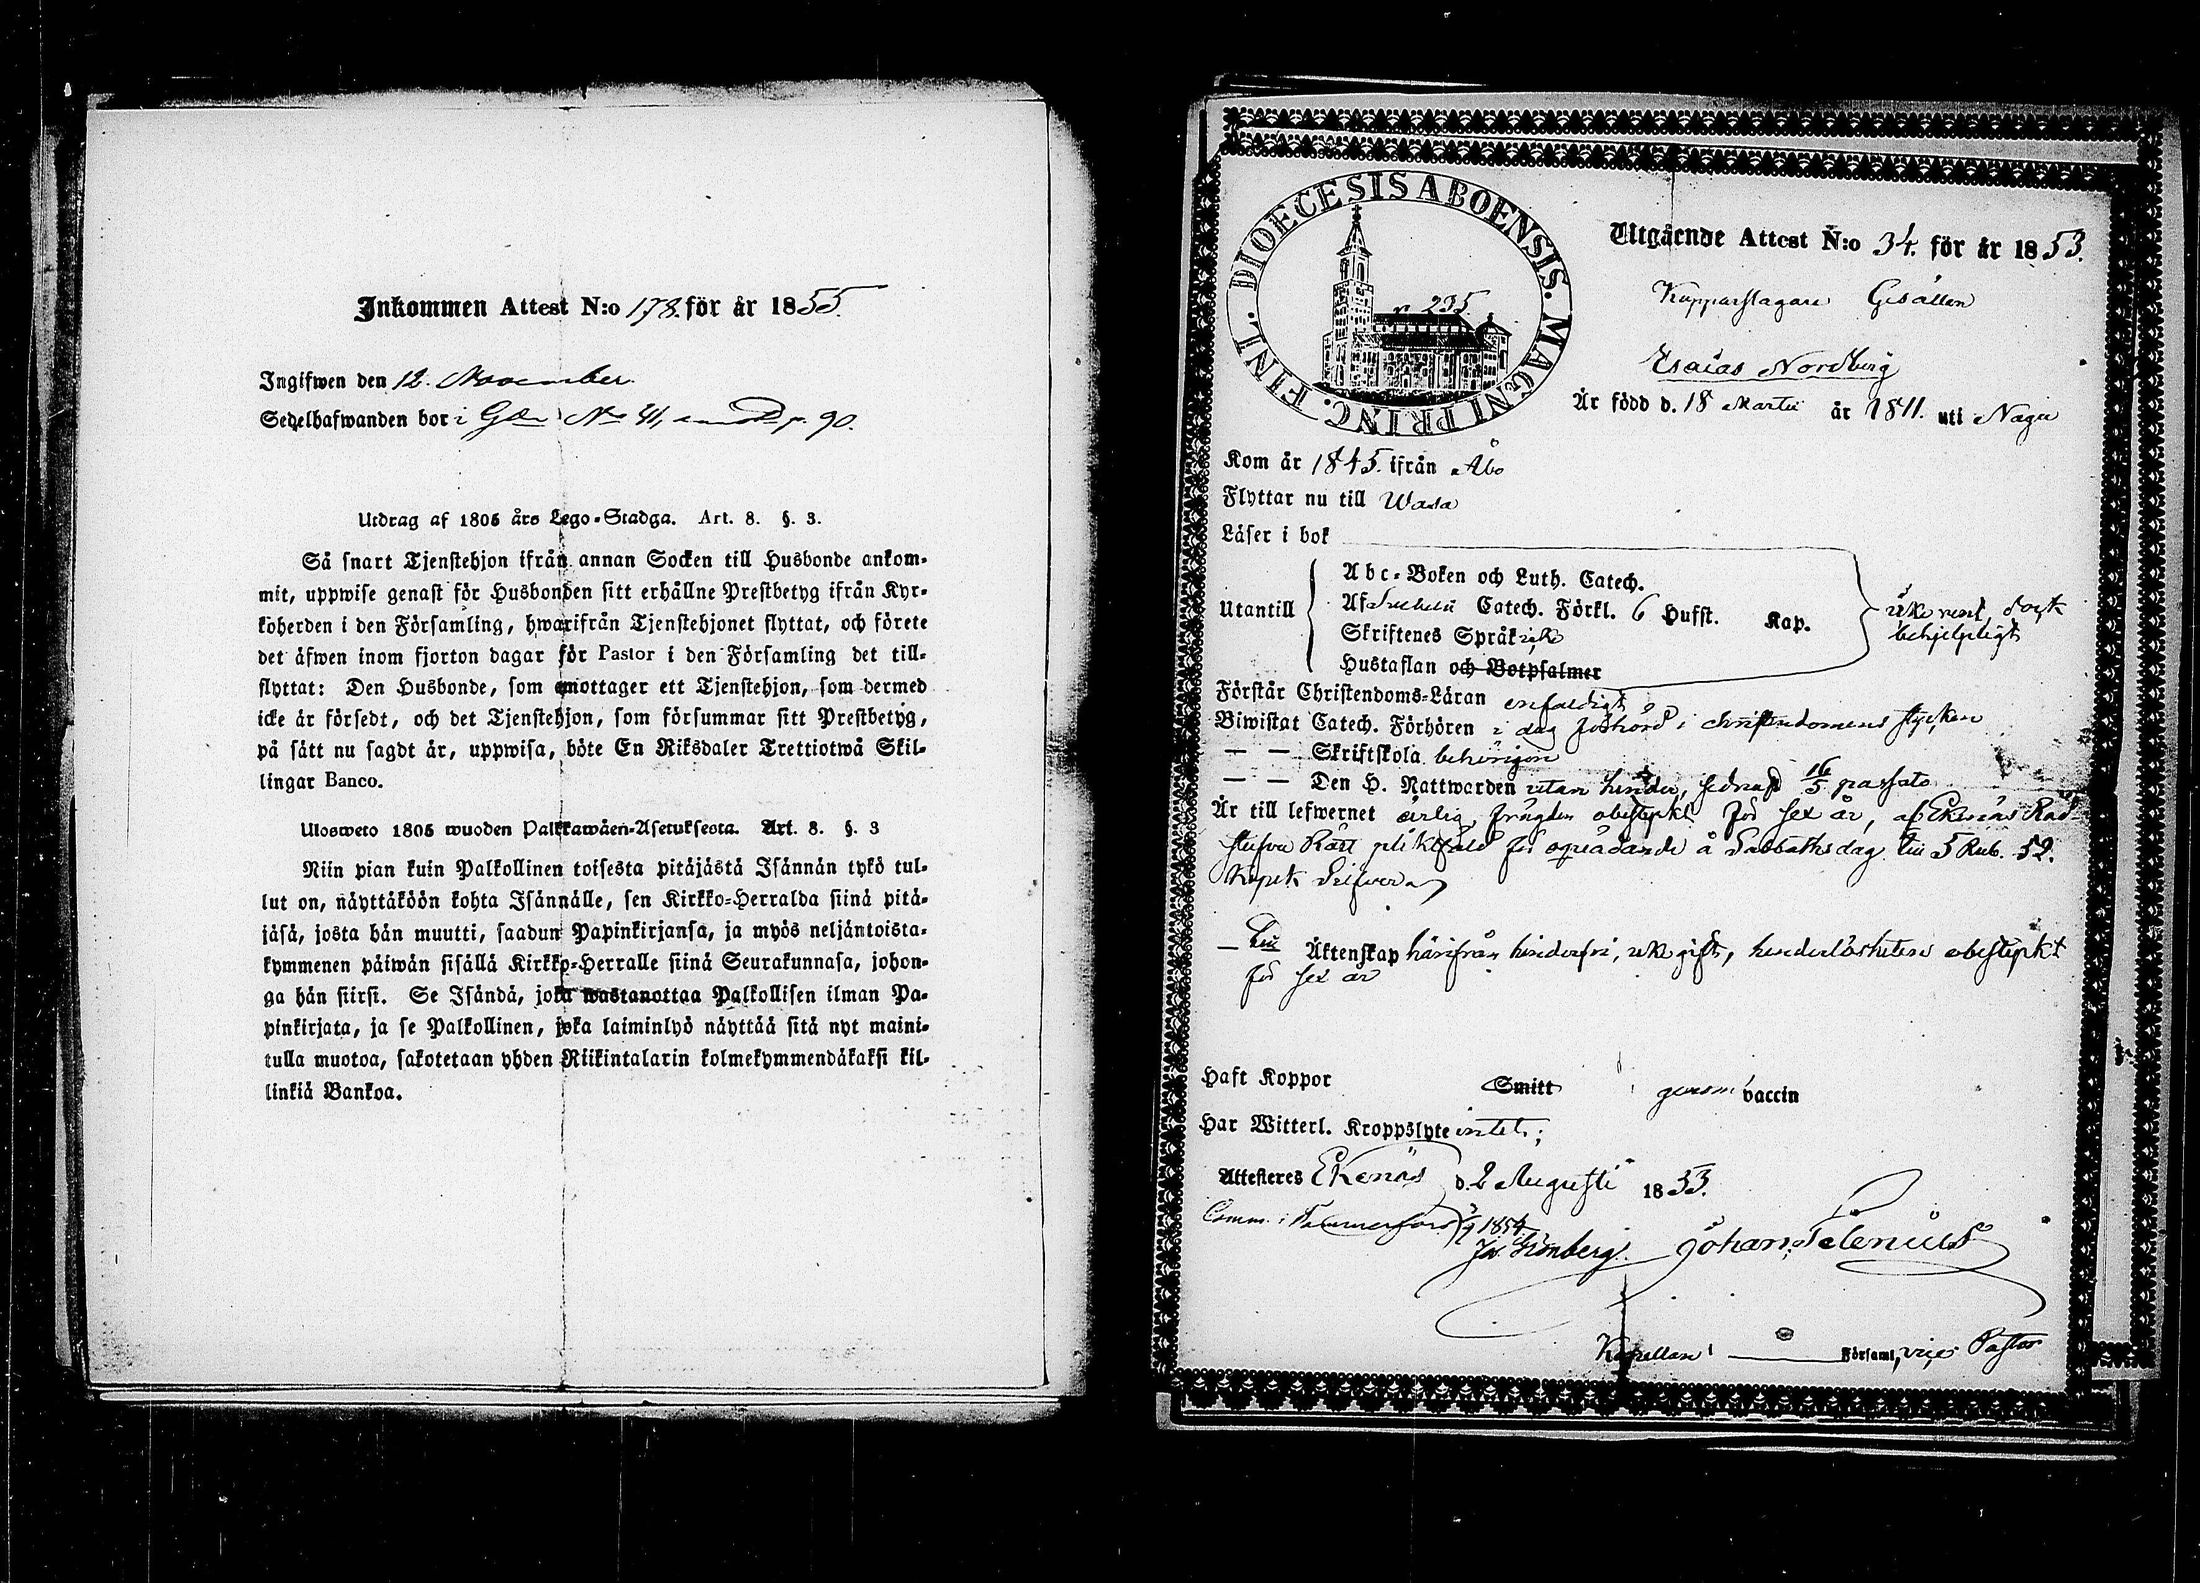 Inkommen Attest N:o 178. för år 1855.
Ingifwen den 12. November.
Sedelhafwanden bor i Gård No 41, p. 90.
Utdrag af 1805 års Lego-Stadga. Art. 8. §. 3.
Så snart Tjenstehjon ifrån annan Socken till Husbonde ankom-
mit, uppwise genast för Husbonden sitt erhållne Prestbetyg ifrån Kyr-
koherden i den Församling, hwarifrån Tjenstehjonet flyttat, och förete
det äfwen inom fjorton dagar för Pastor i den Församling det till-
flyttat: Den Husbonde, som emottager ett Tjenstehjon, som dermed
icke är försedt, och det Tjenstehjon, som försummar sitt Prestbetyg,
på sätt nu sagdt är, uppwisa, böte En Riksdaler Trettiotwå Skil-
lingar Banco.
Ulosweto 1805 wuoden Palkkawäen-Asetuksesta. Art. 8. §. 3
Niin pian kuin Palkollinen toisesta pitäjästä Isännän tykö tul-
lut on, näyttäköön kohta Isännälle, sen Kirkko-Herralda siinä pitä-
jäsä, josta hän muutti, saadun Papinkirjansa, ja myös neljäntoista-
kymmenen päiwän sisällä Kirkko-Herralle siinä Seurakunnasa, johon-
ga hän siirsi. Se Isändä, joka wastanottaa Palkollisen ilman Pa-
pinkirjata, ja se Palkollinen, joka laiminlyö näyttää sitä nyt maini-
tulla muotoa, sakotetaan yhden Riikintalarin kolmekymmendäkaksi kil-
linkiä Bankoa.
DIOECESIS ABOENSIS. MAGNI PRINC. FINL.
n 235.
Utgående Attest N:o 34. för år 1853.
Kopparslagare Gesällen
Esaias Nordberg
Är född d. 18 Martii år 1811. uti Nagu
Kom år 1845. ifrån Åbo
Flyttar nu till Wasa
Läser i bok
Abc-Boken och Luth. Catech.
Utantill Af Svebelii Catech. Förkl. 6 Hufst. Kap. icke rent dock
behjelpligt
Skriftenes Språk icke
Hustaflan och Botpsalmer
Förstår Christendoms-Läran enfaldigt
Biwistat Catech. Förhören i dag förhörd i christendomens stycken
— — Skriftskola behörigen
— — Den H. Nattwarden utan hinder, sednast 16/5 passato
Är till lefwernet ärlig, frägden obestyrkt för sex år, af Ekenäs Råd-
stufvu Rätt pliktfäld för oljud å Sabbathsdag till 5 Rub. 52.
Kopek Silfver
— Till Äktenskap härifrån hinderfri, icke gift, hinderlösheten obestyrkt
för sex år
Haft Koppor Smitt genom vaccin
Har Witterl. Kroppslyte intet;
Attesteres Ekenäs d. 2 Augusti 1853.
Comm. i Tammerfors 1854
Johan Telenius
Kapellan i Församl, vice Pastor